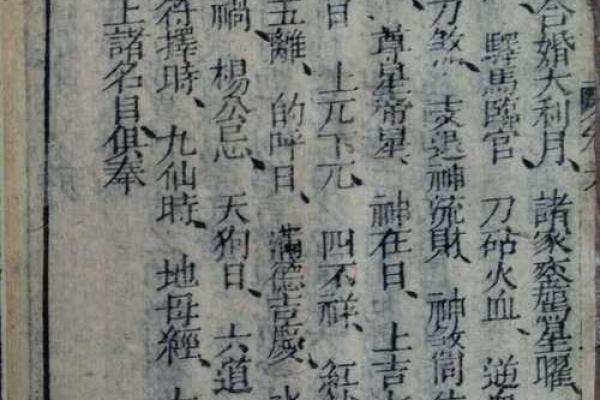 合婚大利月、諸家鑾駕星曜、
驛馬臨官、刀砧火血、逆
刀煞、支退神流財、神煞
尊星帝星、神在日、上吉
日、上元下元、四不祥、紅
五離、的呼日、滿德吉慶、
禍、楊公忌、天狗日、六道
符擇時、九仙時、地母經、
上諸名目俱奉